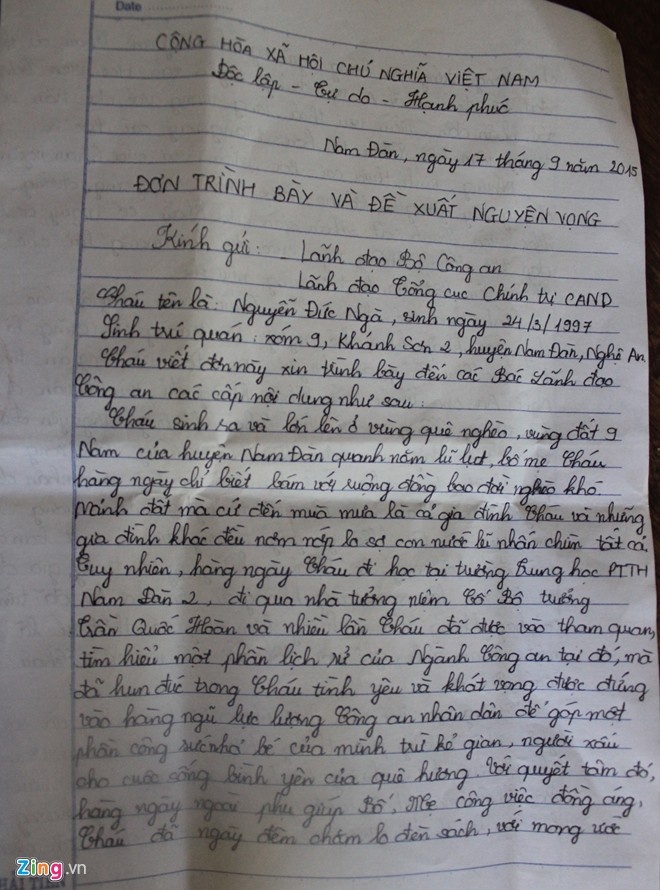 Date
CỘNG HÒA XÃ HỘI CHỦ NGHĨA VIỆT NAM
Độc lập - Tự do - Hạnh phúc
Nam Đàn, ngày 17 tháng 9 năm 2015
ĐƠN TRÌNH BÀY VÀ ĐỀ XUẤT NGUYỆN VỌNG
Kính gửi: - Lãnh đạo Bộ Công an
Lãnh đạo Tổng cục Chính trị CAND
Cháu tên là: Nguyễn Đức Ngà, sinh ngày 24/3/1997
Sinh trú quán: xóm 9, Khánh Sơn 2, huyện Nam Đàn, Nghệ An
Cháu viết đơn này xin trình bày đến các Bác Lãnh đạo
Công an các cấp nội dung như sau:
Cháu sinh ra và lớn lên ở vùng quê nghèo, vùng đất 9
Nam của huyện Nam Đàn quanh năm lũ lụt, bố mẹ Cháu
hàng ngày chỉ biết bám với ruộng đồng bao đời nghèo khó
Mảnh đất mà cứ đến mùa mưa là cả gia đình Cháu và những
gia đình khác đều nơm nớp lo sợ con nước lũ nhấn chìm tất cả.
Tuy nhiên, hàng ngày Cháu đi học tại trường Trung học PTTH
Nam Đàn 2, đi qua nhà tưởng niệm Cố Bộ trưởng
Trần Quốc Hoàn và nhiều lần Cháu đã được vào tham quan,
tìm hiểu một phần lịch sử của Ngành Công an tại đó, mà
đã hun đúc trong Cháu tình yêu và khát vọng được đứng
vào hàng ngũ lực lượng Công an nhân dân để góp một
phần công sức nhỏ bé của mình trừ kẻ gian, người xấu
cho cuộc sống bình yên của quê hương. Với quyết tâm đó,
hàng ngày ngoài phụ giúp Bố, Mẹ công việc đồng áng,
Cháu đã ngày đêm chăm lo đèn sách, với mong ước
Zing.vn
HẢI TIẾN